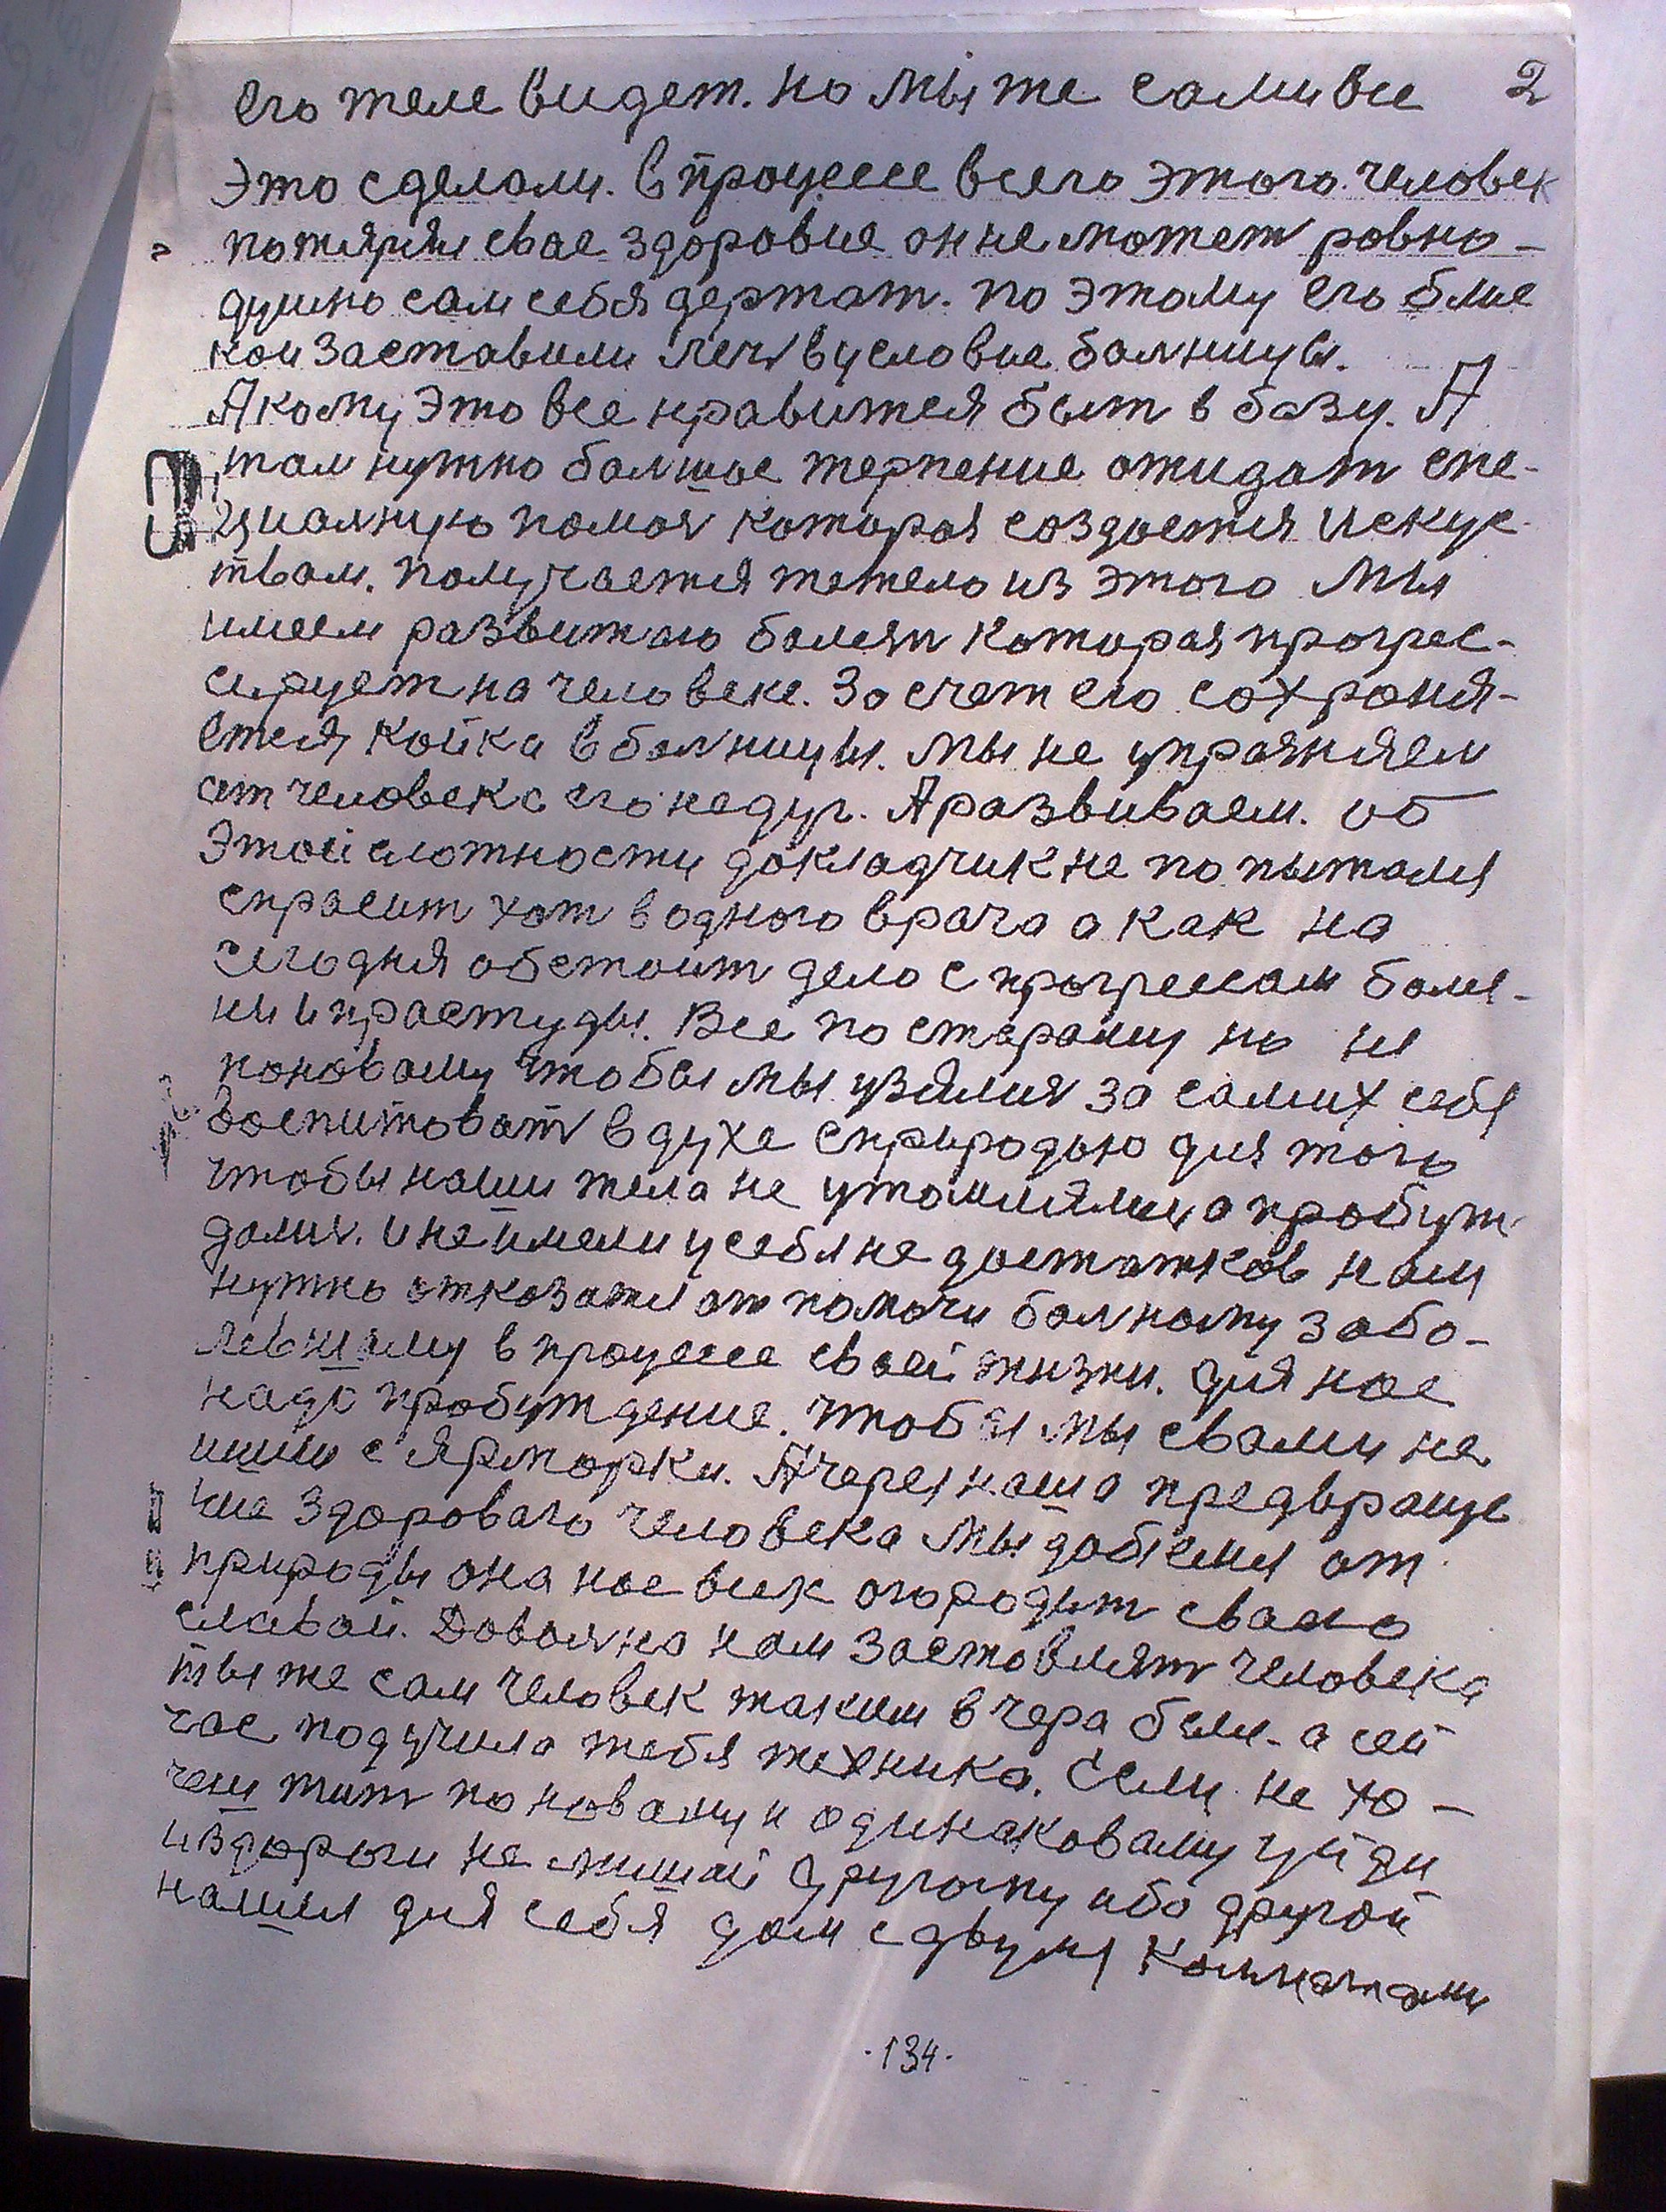 его теле видет. но мы же сами все 2
это сделали. в процессе всего этого. человек
потярял свае здоровие он не может равно-
душно сам себя держат. по этому его блис
кои заставили леч в условие болницы.
А кому это все нравится быт в базу. А
там нужно болшое терпение ожидат спе-
циалную помоч которая создается искус-
твам. получается тежело из этого мы
имеем развитаю болезн которая прогрес-
сирует на человеке. За счет его сохраня-
ется койка в болницы. мы не упражняем
от человека его недуг. А развиваем. об
этой сложности докладчик не попытался
спрасит хот в одного врача а как на
сегодня обстоит дело с прогрессам болез-
ни и прастуды. Все по старому но не
поновому чтобы мы узялис за самих себя
воспитоват в духе с природою для того
чтобы наши тела не утомлялис а пробуж-
далис. и не имели у себя не достатков нам
нужно отказатся от помочи болному забо-
левшиму в процессе своей жизни. для нас
надо пробуждение. чтобы мы с вами не
ишли с ярморки. А через наша предвраще
ние здороваго человека мы добемся от
природы она нас всех огородит сваею
славой. Доволно нам заставлят человека
ты же сам человек таким вчера был- а сей
час подучила тебя техника. Если не хо-
чеш жит по новаму и одинаковаму уйди
из дороги не мишай другому ибо другой
нашил для себя дом с двумя комнатами
·134·